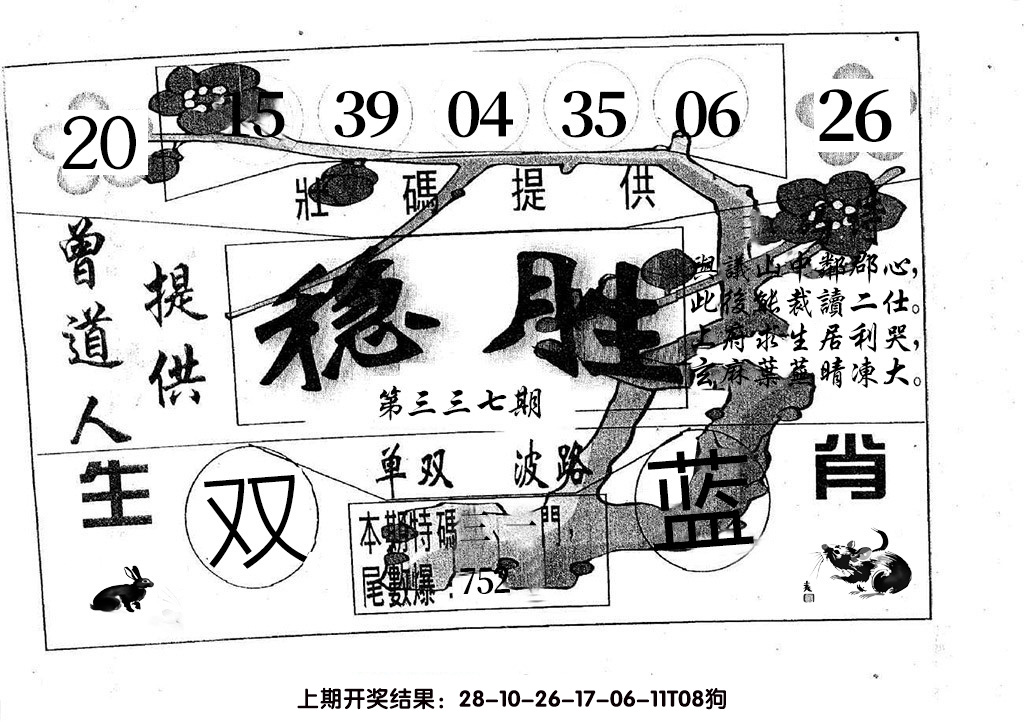 20 15 39 04 35 06 26
壯碼提供
曾道人
提供
與議山中鄰郡心，
此後能裁讀二仕。
上府求生居利哭，
玄麻葉蓋晴凍大。
稳胜
第三三七期
单双 波路
生肖
双
蓝
本期特碼三、一門
尾數爆：752
上期开奖结果：28-10-26-17-06-11T08狗